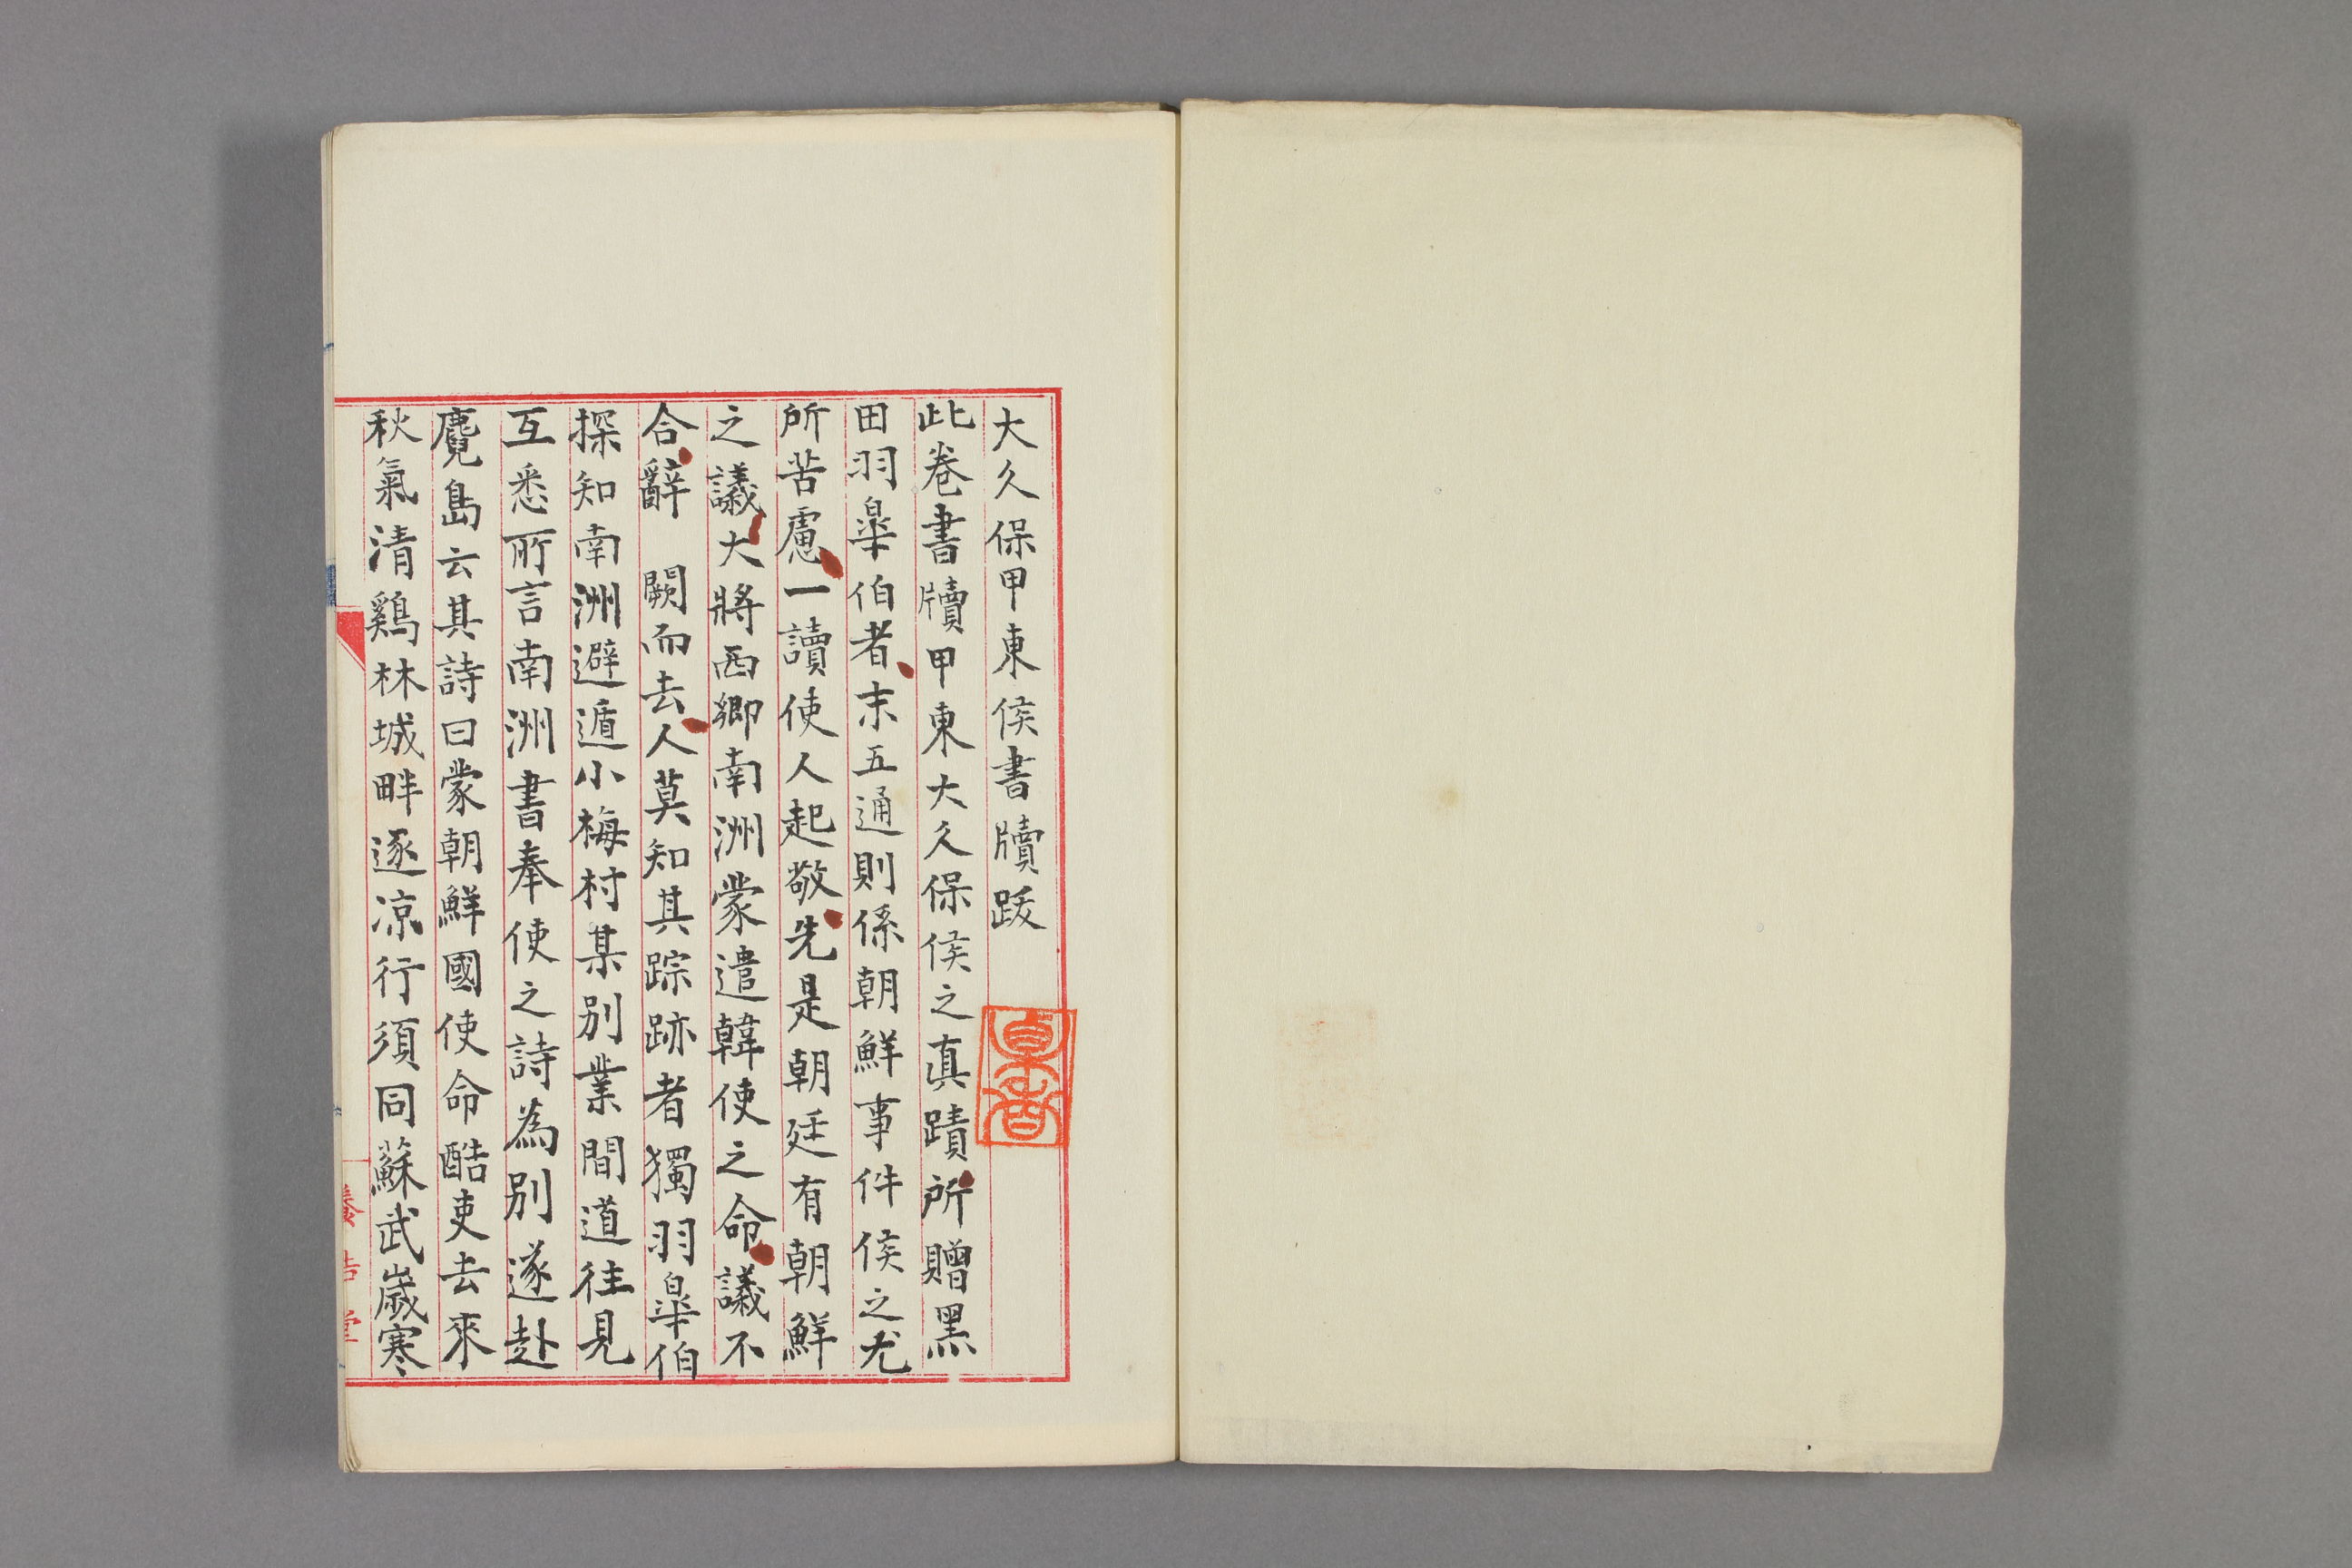 大久保甲東侯書牘跋
此卷書牘甲東大久保侯之真蹟所贈黑
田羽皐伯者末五通則係朝鮮事件侯之尤
所苦慮一讀使人起敬先是朝廷有朝鮮
之議大將西鄉南洲蒙遣韓使之命議不
合辭 闕而去人莫知其踪跡者獨羽皐伯
探知南洲避遁小梅村某別業間道往見
互悉所言南洲書奉使之詩為別遂赴
麑島云其詩曰蒙朝鮮國使命酷吏去來
秋氣清鷄林城畔逐凉行須同蘇武歲寒